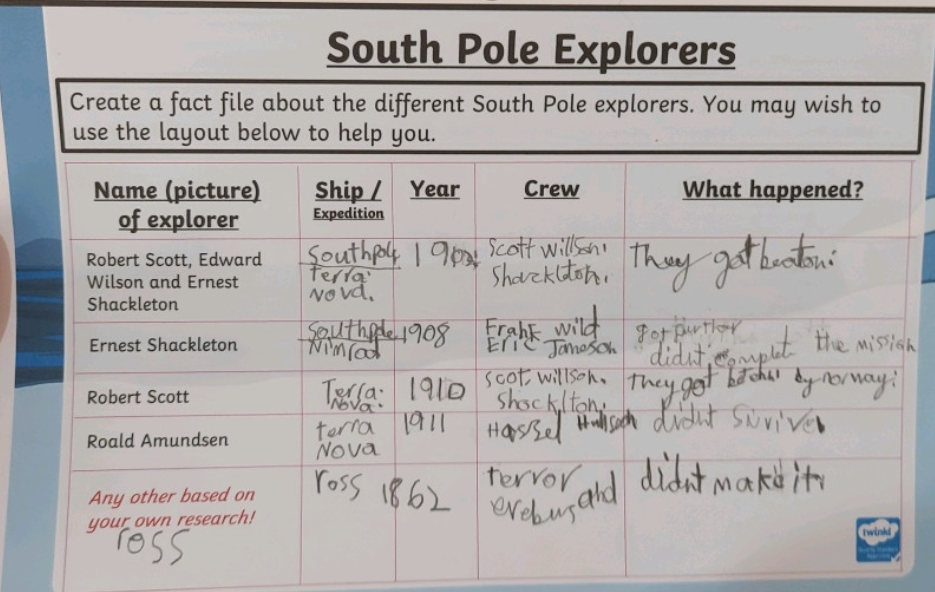 South Pole Explorers
Create a fact file about the different South Pole explorers. You may wish to
use the layout below to help you.
Name (picture)
of explorer
Ship /
Expedition
Year
Crew
What happened?
Robert Scott, Edward
Wilson and Ernest
Shackleton
Southpole
Terra
Nova.
Scott Willson
They got beaton
Ernest Shackleton
Southpole
Nimrod
1908
Frank wild
Eric Jameson
didnt complet the mission
Robert Scott
Terra
Nova.
1910
Scot, willson.
Shacklton.
They got by norway
Roald Amundsen
terra
Nova
1911
didnt
Any other based on
your own research!
ross
ross
1862
terror
erebus and
didnt make it
twinkl